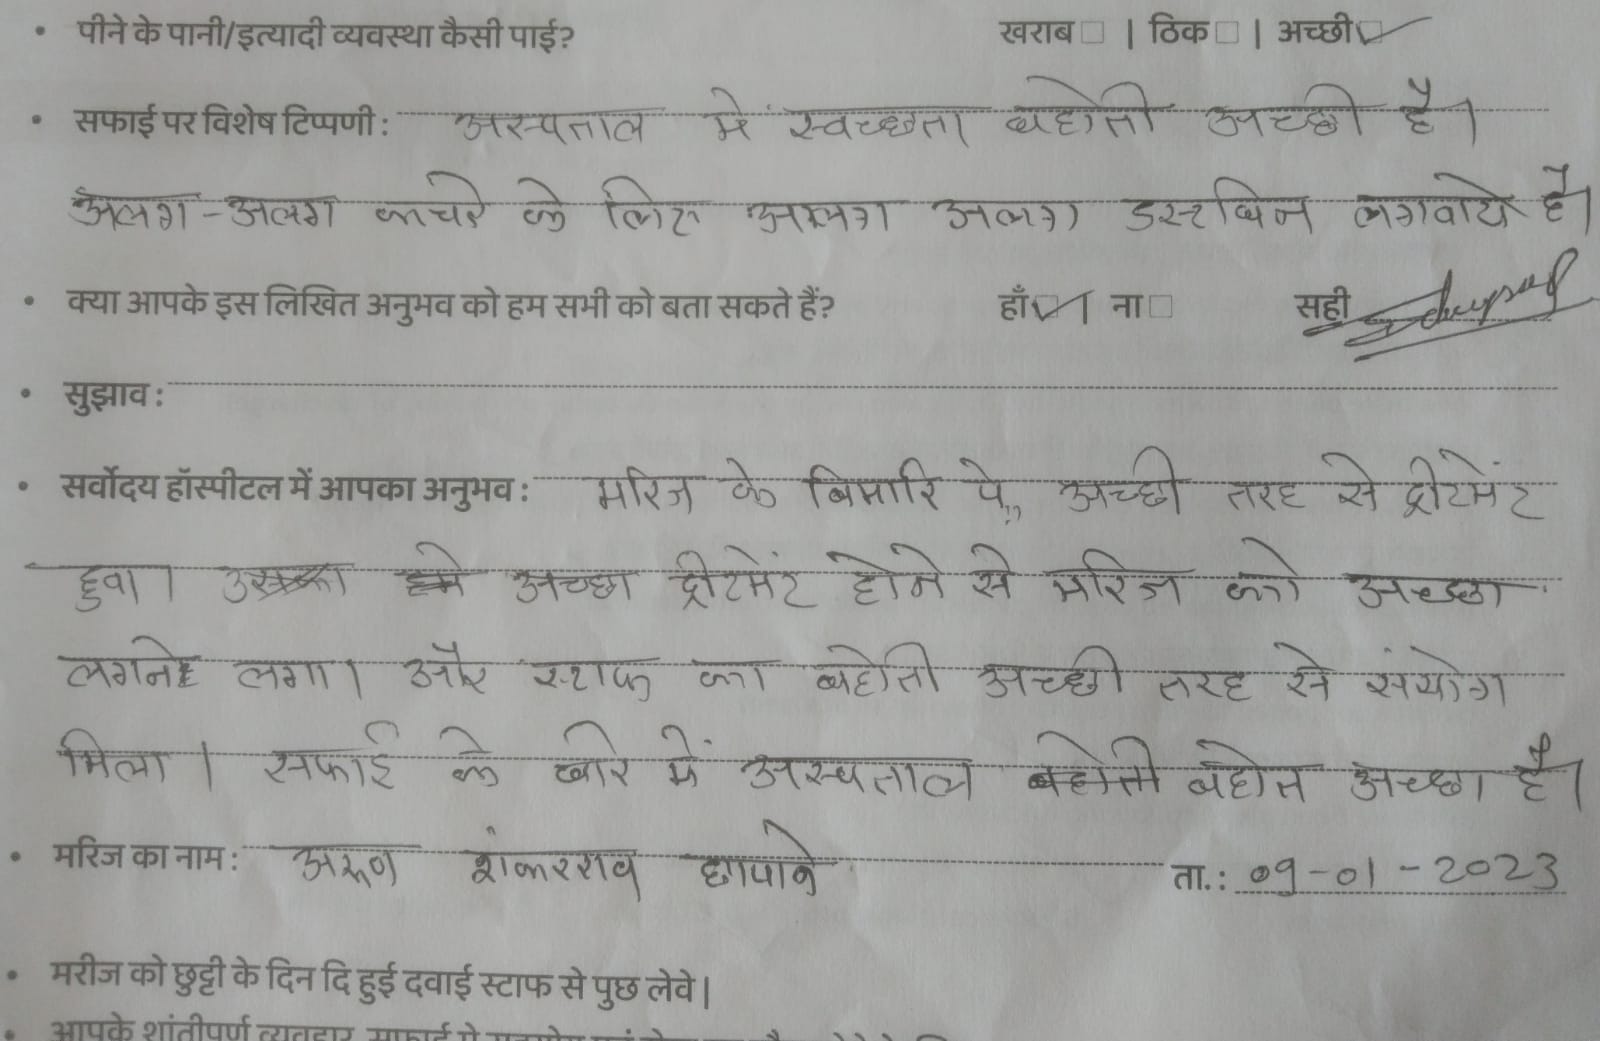 • पीने के पानी/इत्यादी व्यवस्था कैसी पाई? खराब□ | ठिक□ | अच्छी☑
• सफाई पर विशेष टिप्पणी: अस्पताल में स्वच्छता बहोती अच्छी है।
अलग-अलग कचरे के लिए अलग अलग डस्टबिन लगवाये है।
• क्या आपके इस लिखित अनुभव को हम सभी को बता सकते हैं? हाँ☑ | ना□ सही
• सुझाव:
• सर्वोदय हॉस्पीटल में आपका अनुभव: मरिज के बिमारि पे,, अच्छी तरह से ट्रीटमेंट
हुवा। अच्छा ट्रीटमेंट होने से मरिज को अच्छा
लगने लगा। और स्टाफ का बहोती अच्छी तरह से संयोग
मिला। सफाई के बारे में अस्पताल बहोत अच्छा है।
• मरिज का नाम: अरूण शंकरराव छापाने ता.: 09-01-2023
• मरीज को छुट्टी के दिन दि हुई दवाई स्टाफ से पुछ लेवे।
• आपके शांतीपूर्ण व्यवहार, सफाई मे